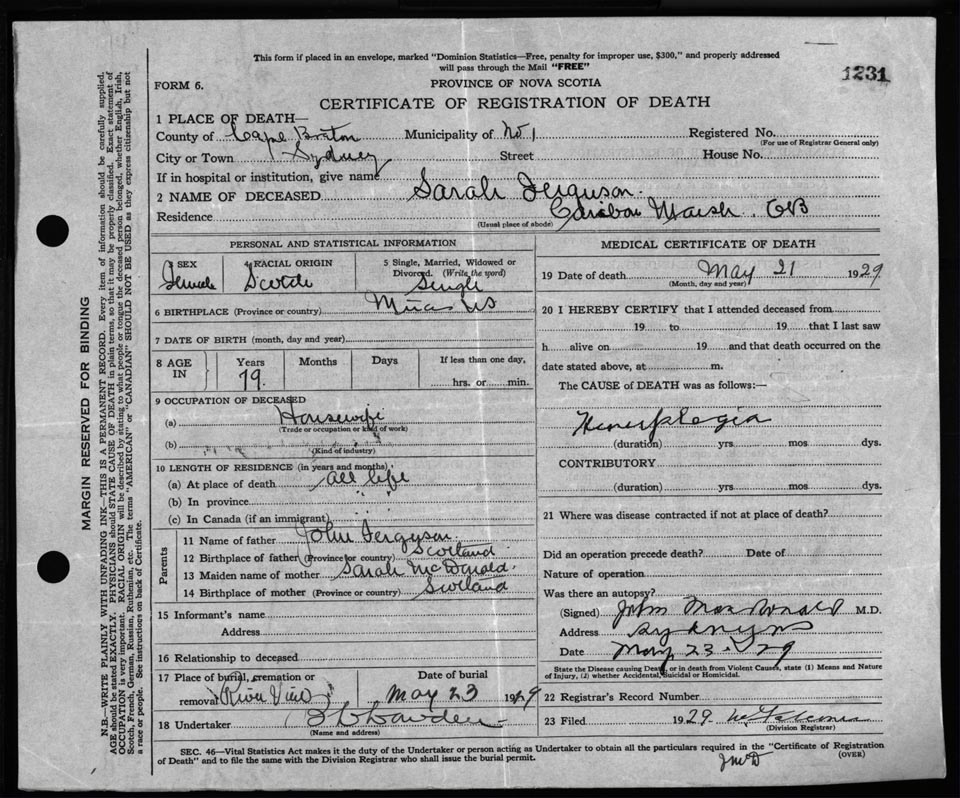 This form if placed in an envelope, marked "Dominion Statistics—Free, penalty for improper use, $300," and properly addressed
will pass through the Mail "FREE"
1231
FORM 6.
PROVINCE OF NOVA SCOTIA
CERTIFICATE OF REGISTRATION OF DEATH
1 PLACE OF DEATH—
County of Cape Breton Municipality of No 1 Registered No.
(For use of Registrar General only)
City or Town Sydney Street House No.
If in hospital or institution, give name
2 NAME OF DECEASED Sarah Ferguson
Residence Caribou Marsh. CB
(Usual place of abode)
PERSONAL AND STATISTICAL INFORMATION
3 SEX 4 RACIAL ORIGIN 5 Single, Married, Widowed or Divorced. (Write the word)
Female Scotch Single
6 BIRTHPLACE (Province or country) NS
7 DATE OF BIRTH (month, day and year)
8 AGE IN Years Months Days If less than one day,
79. hrs. or min.
9 OCCUPATION OF DECEASED
(a) Housewife
(Trade or occupation or kind of work)
(b)
(Kind of industry)
10 LENGTH OF RESIDENCE (in years and months)
(a) At place of death all life
(b) In province " "
(c) In Canada (if an immigrant)
Parents
11 Name of father John Ferguson.
12 Birthplace of father (Province or country) Scotland
13 Maiden name of mother Sarah McDonald.
14 Birthplace of mother (Province or country) Scotland
15 Informant's name
Address
16 Relationship to deceased
17 Place of burial, cremation or
removal Date of burial
May 23 1929
18 Undertaker
(Name and address)
MEDICAL CERTIFICATE OF DEATH
19 Date of death May 21 1929
(Month, day and year)
20 I HEREBY CERTIFY that I attended deceased from
19 to 19 that I last saw
h alive on 19 and that death occurred on the
date stated above, at m.
The CAUSE of DEATH was as follows:—
Hemiplegia
(duration) yrs. mos. dys.
CONTRIBUTORY
(duration) yrs. mos. dys.
21 Where was disease contracted if not at place of death?
Did an operation precede death? Date of
Nature of operation
Was there an autopsy?
(Signed) John MacDonald M.D.
Address Sydney NS
Date May 23-29
State the Disease causing Death, or in death from Violent Causes, state (1) Means and Nature
of Injury, (2) whether Accidental, Suicidal or Homicidal.
22 Registrar's Record Number
23 Filed 1929
(Division Registrar)
SEC. 46—Vital Statistics Act makes it the duty of the Undertaker or person acting as Undertaker to obtain all the particulars required in the "Certificate of Registration
of Death" and to file the same with the Division Registrar who shall issue the burial permit.
(OVER)
JMcD
MARGIN RESERVED FOR BINDING
N.B.—WRITE PLAINLY WITH UNFADING INK—THIS IS A PERMANENT RECORD. Every item of information should be carefully supplied.
AGE should be stated EXACTLY. PHYSICIANS should STATE CAUSE OF DEATH in plain terms, so that it may be properly classified. Exact statement of
OCCUPATION is very important. RACIAL ORIGIN will be described by stating to what people or tongue the deceased person belonged, whether English, Irish,
Scotch, French, German, Russian, Ruthenian, etc. The terms "AMERICAN" or "CANADIAN" SHOULD NOT BE USED as they express citizenship but not
a race or people. See instructions on back of Certificate.